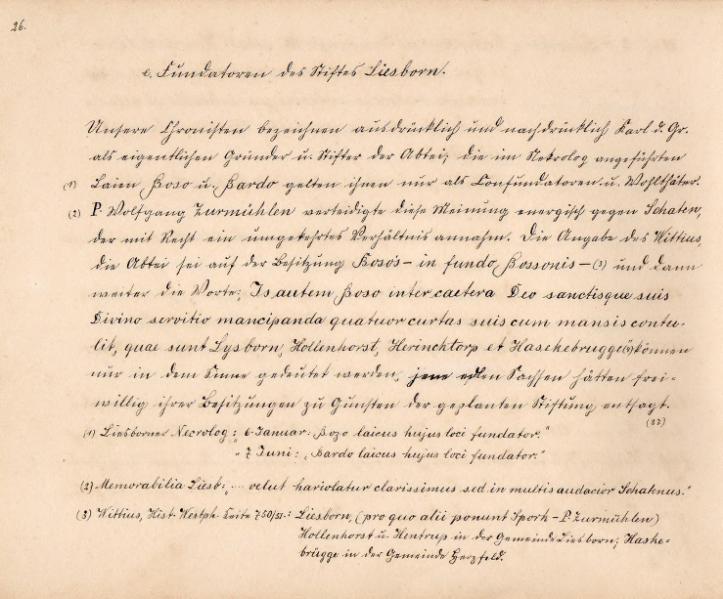 26.
c. Fundatoren des Stiftes Liesborn.
Unsere Chronisten bezeichnen ausdrücklich und nachdrücklich Karl d. Gr.
als eigentlichen Gründer u. Stifter der Abtei; die im Nekrolog angeführten
(1) Laien Boso u. Bardo gelten ihnen nur als Confundatoren u. Wohlthäter.
(2) P. Wolfgang Zurmühlen verteidigte diese Meinung energisch gegen Schaten,
der mit Recht ein umgekehrtes Verhältnis annahm. Die Angabe des Wittius,
die Abtei sei auf der Besitzung Boso's - in fundo Bossonis - (3) und dann
weiter die Worte: Is autem Boso inter caetera Deo sanctisque suis
Divino servitio mancipanda quatuor curtas suis cum mansis contu-
lit, quae sunt Lysborn, Hollenhorst, Herinchtorp et Haschebrugge können
nur in dem Sinne gedeutet werden, jene edlen Sachsen hätten frei-
willig ihrer Besitzungen zu Gunsten der geplanten Stiftung entsagt.
(1) Liesborner Necrolog: „ 6 Januar: Bozo laicus hujus loci fundator."
„ 7 Juni: „ Bardo laicus hujus loci fundator."
(2) Memorabilia Liesb: „ ... velut hariolatur clarissimus sed in multis audacior Schatenus."
(3) Wittius, Hist. Westph. Seite 750/51.: Liesborn, (pro quo alii ponunt Spork - P. Zurmühlen)
Hollenhorst u. Hentrup in der Gemeinde Liesborn; Haske-
brügge in der Gemeinde Herzfeld.